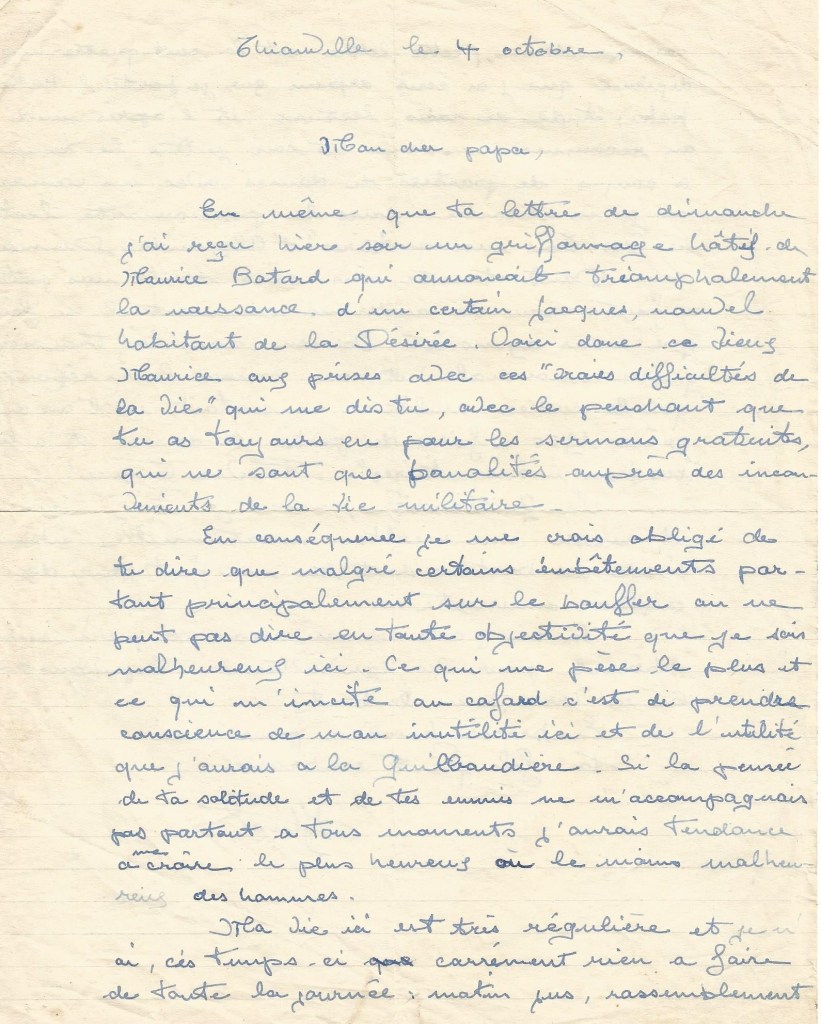 Thionville le 4 octobre,
Mon cher papa,
En même que ta lettre de dimanche
j'ai reçu hier soir un griffonnage hâtif de
Maurice Batard qui annoncait triomphalement
la naissance d'un certain Jacques, nouvel
habitant de la Désirée. Voici donc ce vieux
Maurice aux prises avec ces "vraies difficultés de
la vie" qui me dis tu, avec le penchant que
tu as toujours eu pour les sermons gratuits,
qui ne sont que banalités auprès des incon-
venients de la vie militaire.
En conséquence je me crois obligé de
te dire que malgré certains embêtements por-
tant principalement sur le bouffer on ne
peut pas dire en toute objectivité que je sois
malheureux ici. Ce qui me pèse le plus et
ce qui m'incite au cafard c'est de prendre
conscience de mon inutilité ici et de l'utilité
que j'aurais a la Guilbaudière. Si la pensée
de ta solitude et de tes ennuis ne m'accompagnais
pas partout a tous moments j'aurais tendance
à me croire le plus heureux où le moins malheu-
reux des hommes.
Ma vie ici est très régulière et je n'
ai, ces temps-ci carrément rien a faire
de toute la journée : matin jus, rassemblement